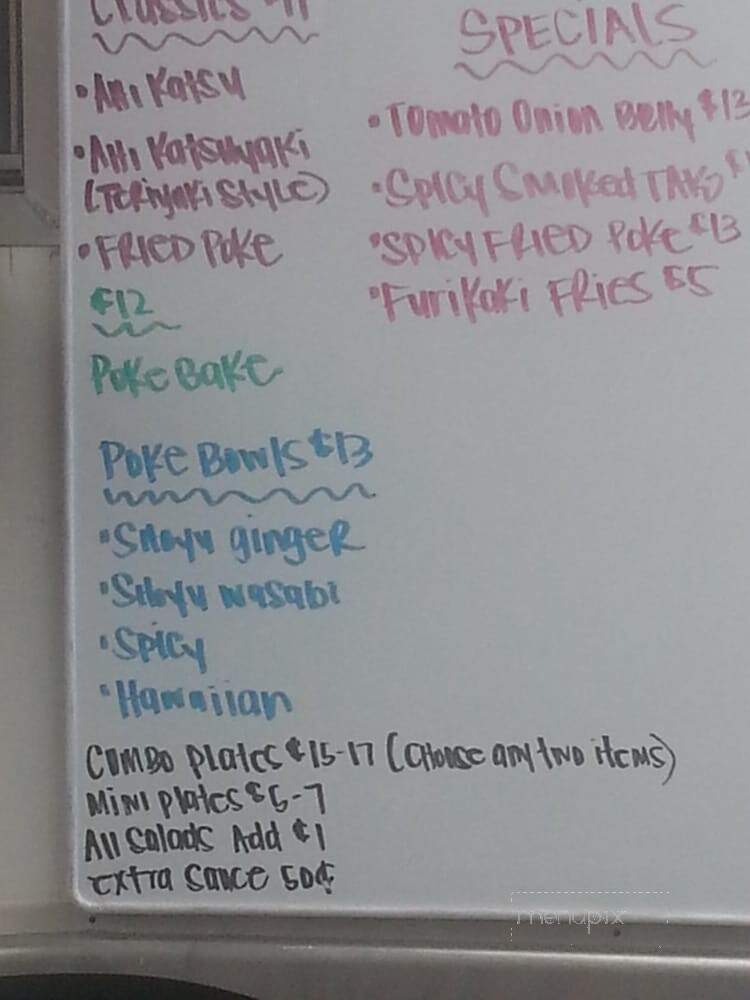 Classics $11
• Ahi Katsu
• Ahi Katsuyaki
(Teriyaki Style)
• FRIED Poke
$12
Poke Bake
Poke Bowls $13
• Shoyu ginger
• Shoyu wasabi
• Spicy
• Hawaiian
SPECIALS
• Tomato Onion Belly $13
• Spicy Smoked TAKO
• SPICY FRIED Poke $13
• Furikaki FRIES $5
Combo plates $15-17 (choose any two items)
Mini plates $6-7
All Salads Add $1
Extra Sauce 50¢
menupix